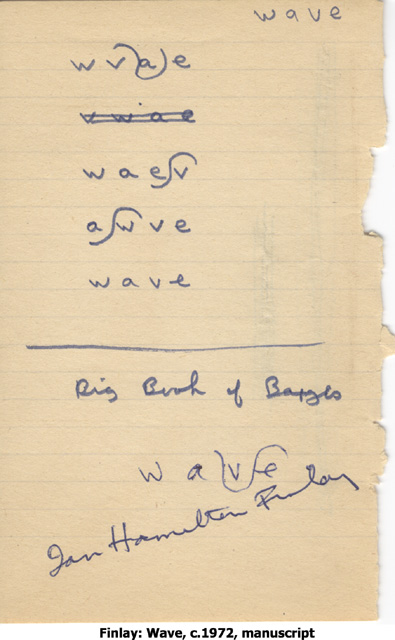 wave
w v a e
v w a e
w a e v
a w v e
w a v e
Big Book of Barges
w a v e
Ian Hamilton Finlay
Finlay: Wave, c.1972, manuscript